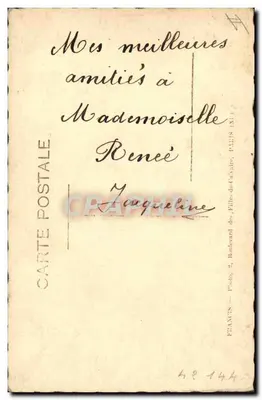 Mes meilleures
amitiés à
Mademoiselle
Renée
Jacqueline
CARTE POSTALE
FRANCIS — Photo, 2, Boulevard des Filles-du-Calvaire, PARIS